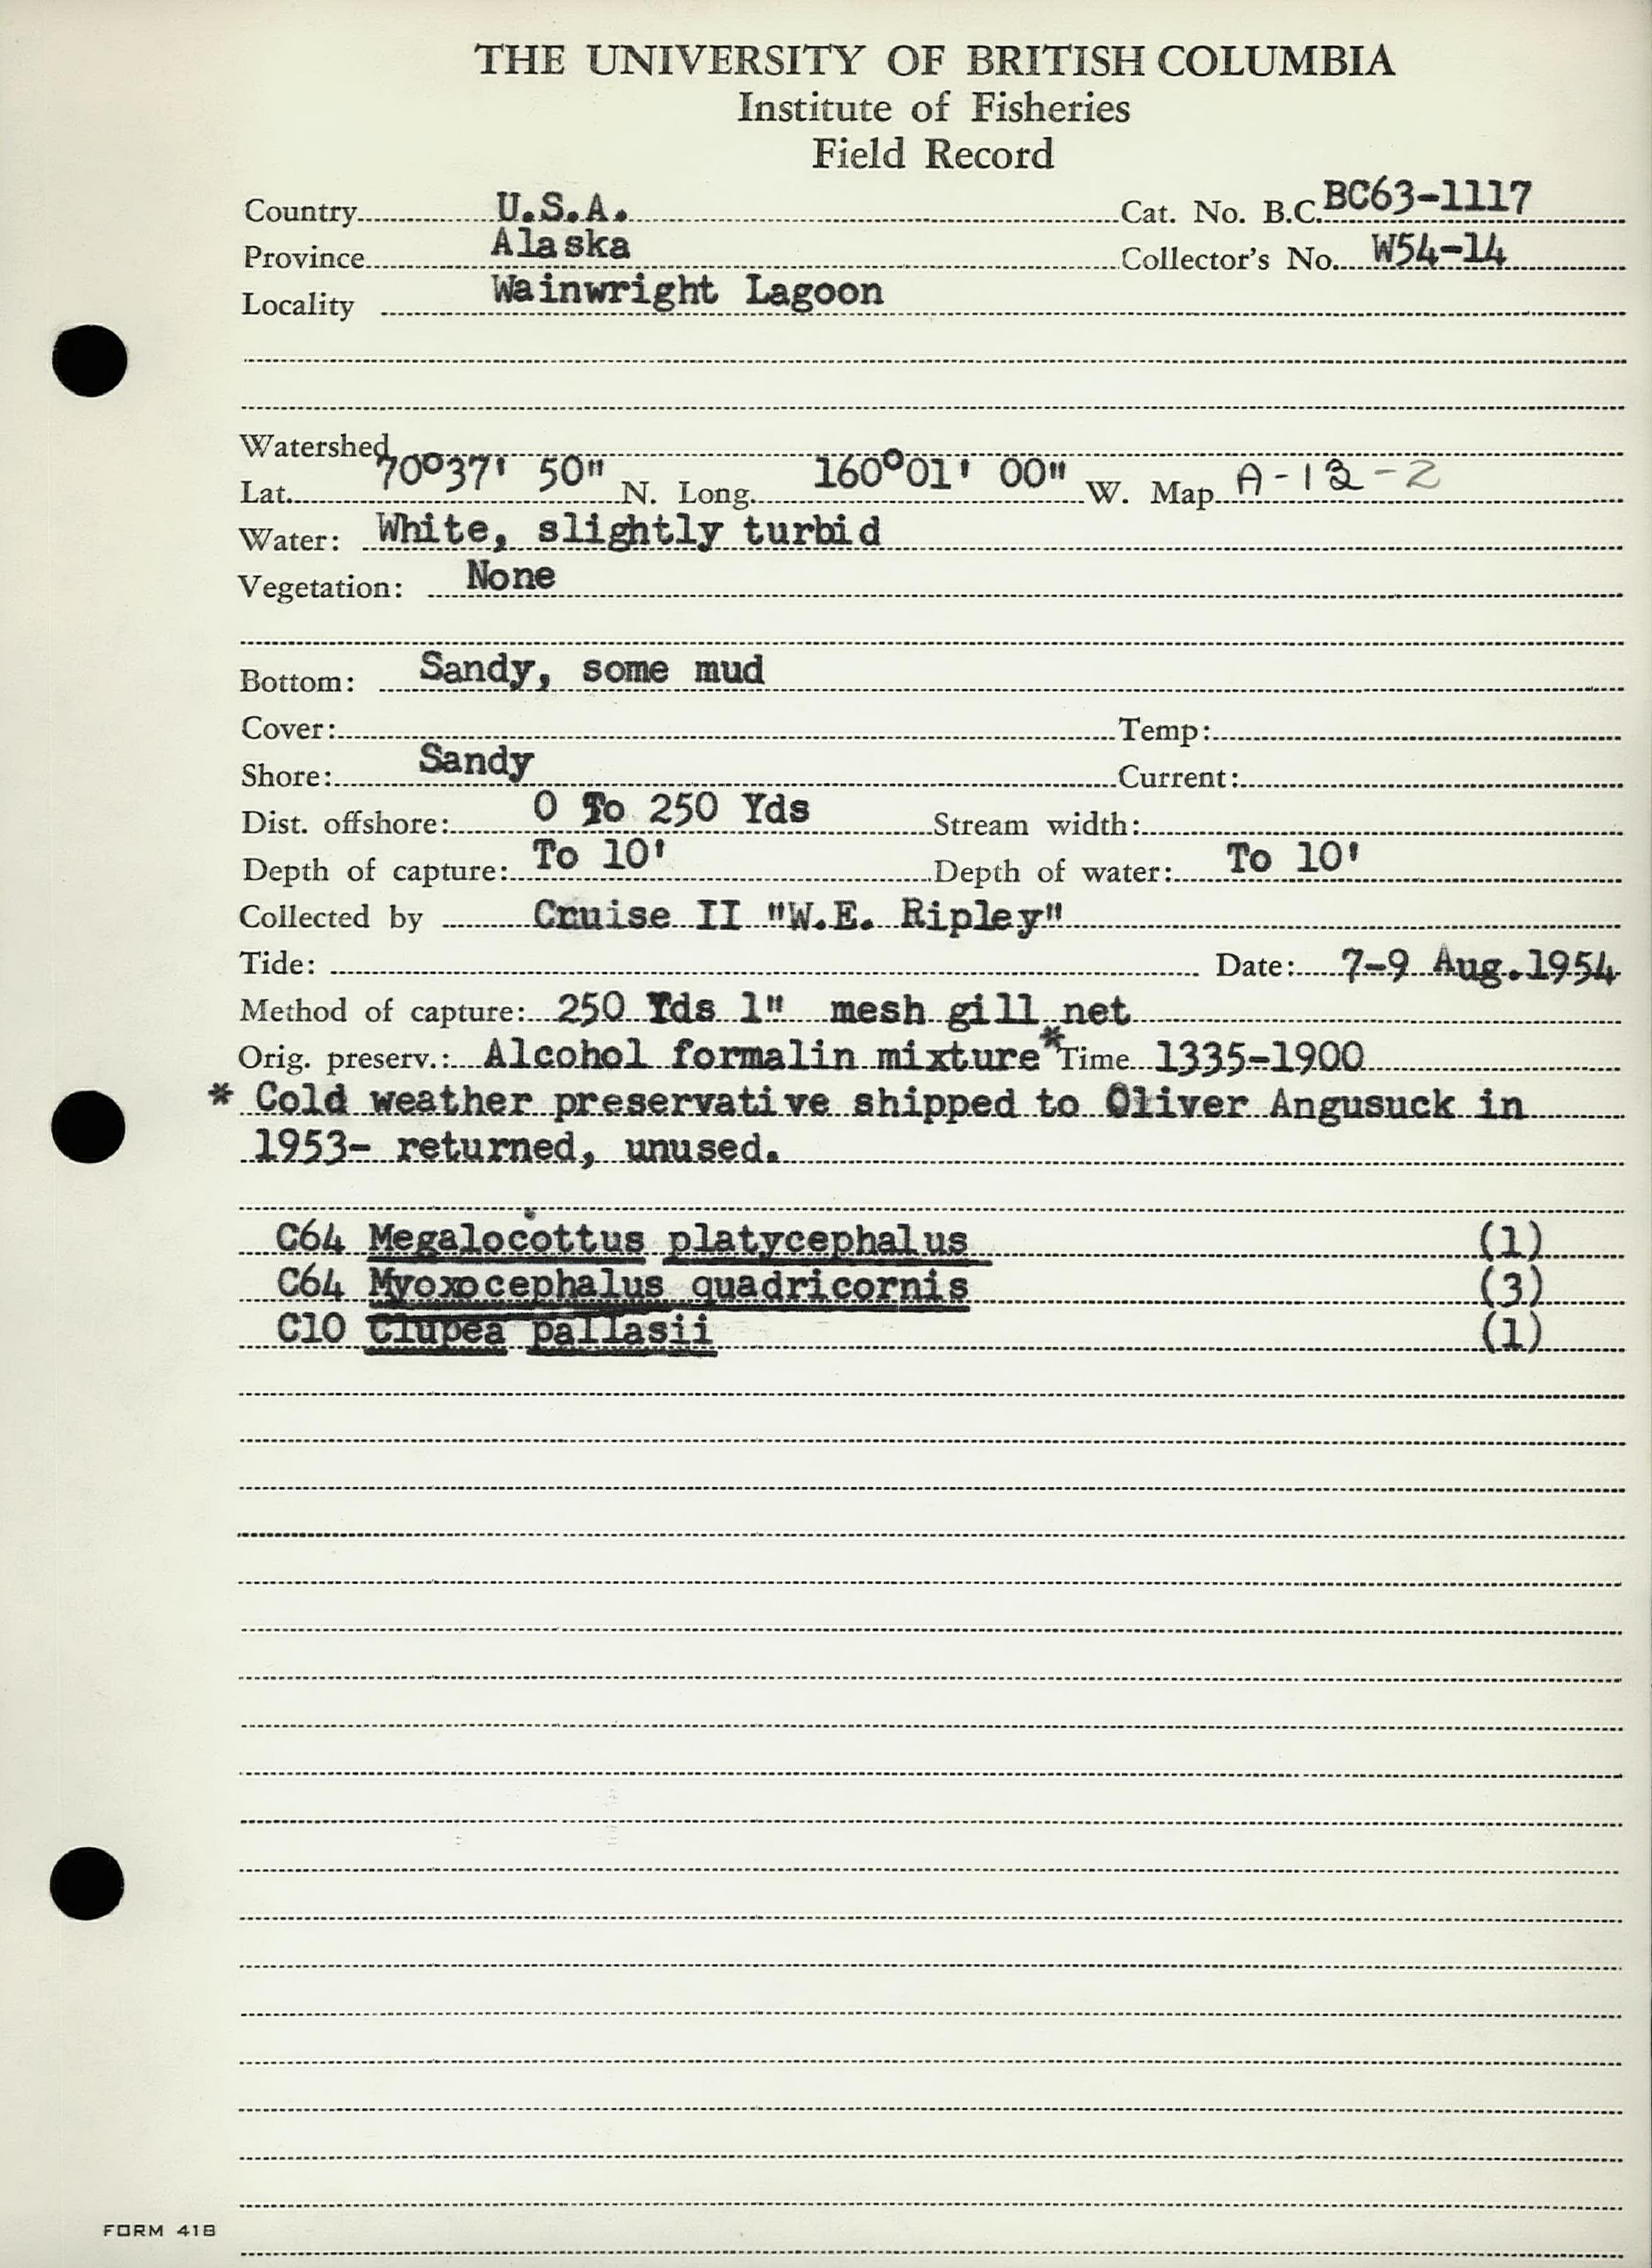 THE UNIVERSITY OF BRITISH COLUMBIA
Institute of Fisheries
Field Record
Country U.S.A. Cat. No. B.C. BC63-1117
Province Alaska Collector's No. W54-14
Locality Wainwright Lagoon
Watershed
Lat. 70°37' 50" N. Long. 160°01' 00" W. Map A-12-2
Water: White, slightly turbid
Vegetation: None
Bottom: Sandy, some mud
Cover: Temp:
Shore: Sandy Current:
Dist. offshore: 0 To 250 Yds Stream width:
Depth of capture: To 10' Depth of water: To 10'
Collected by Cruise II "W.E. Ripley"
Tide: Date: 7-9 Aug.1954
Method of capture: 250 Yds 1" mesh gill net
Orig. preserv.: Alcohol formalin mixture* Time 1335-1900
* Cold weather preservative shipped to Oliver Angusuck in
1953- returned, unused.
C64 Megalocottus platycephalus (1)
C64 Myoxocephalus quadricornis (3)
C10 Clupea pallasii (1)
FORM 418